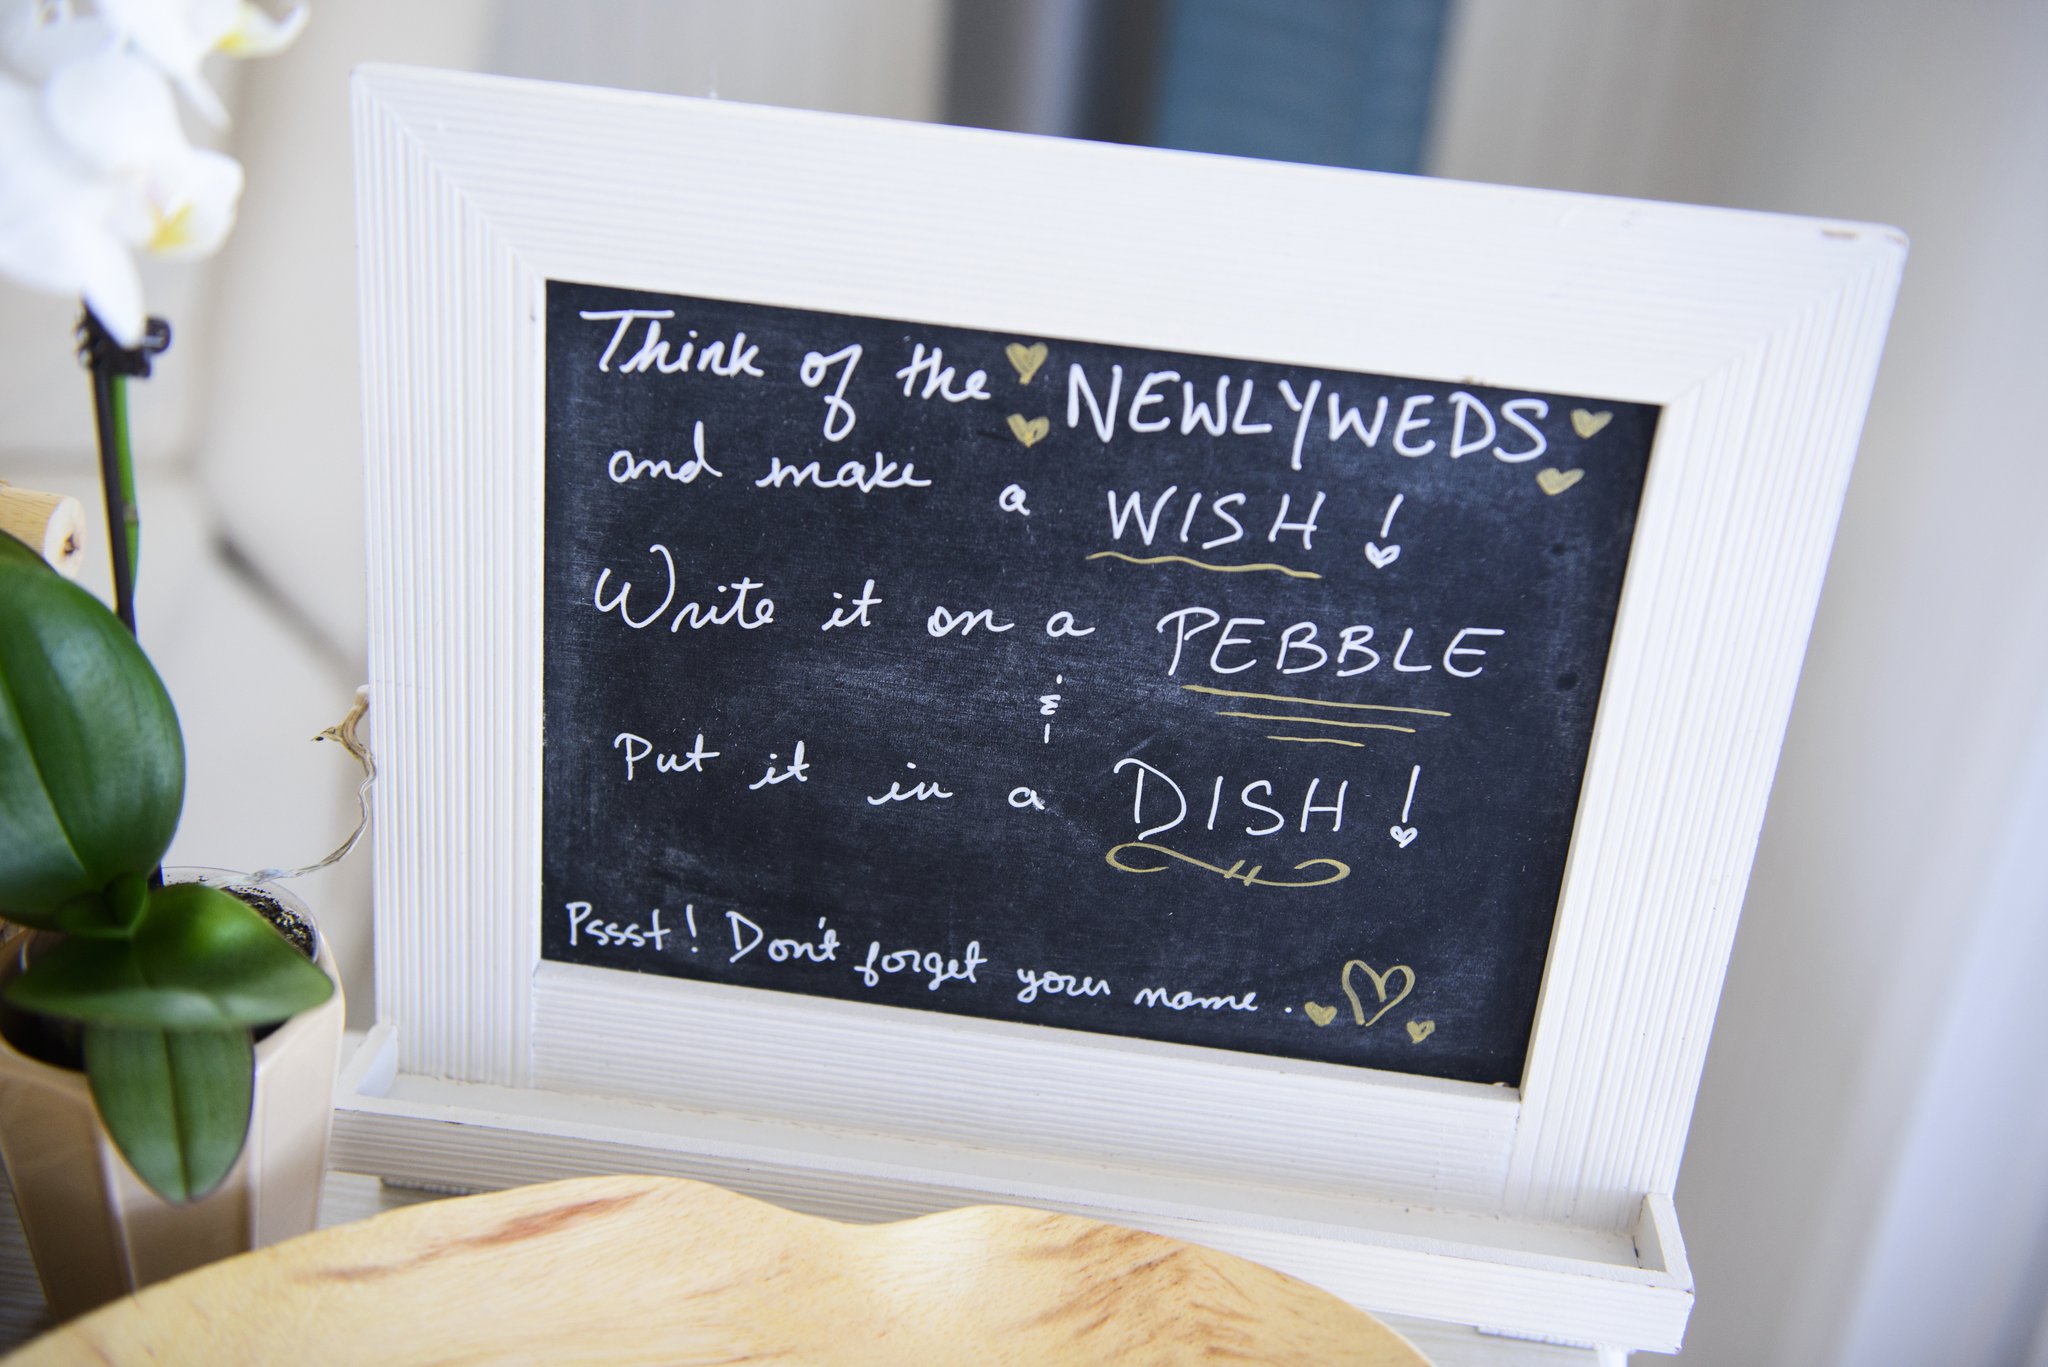 Think of the NEWLYWEDS
and make a WISH!
Write it on a PEBBLE
&
Put it in a DISH!
Pssst! Don't forget your name.